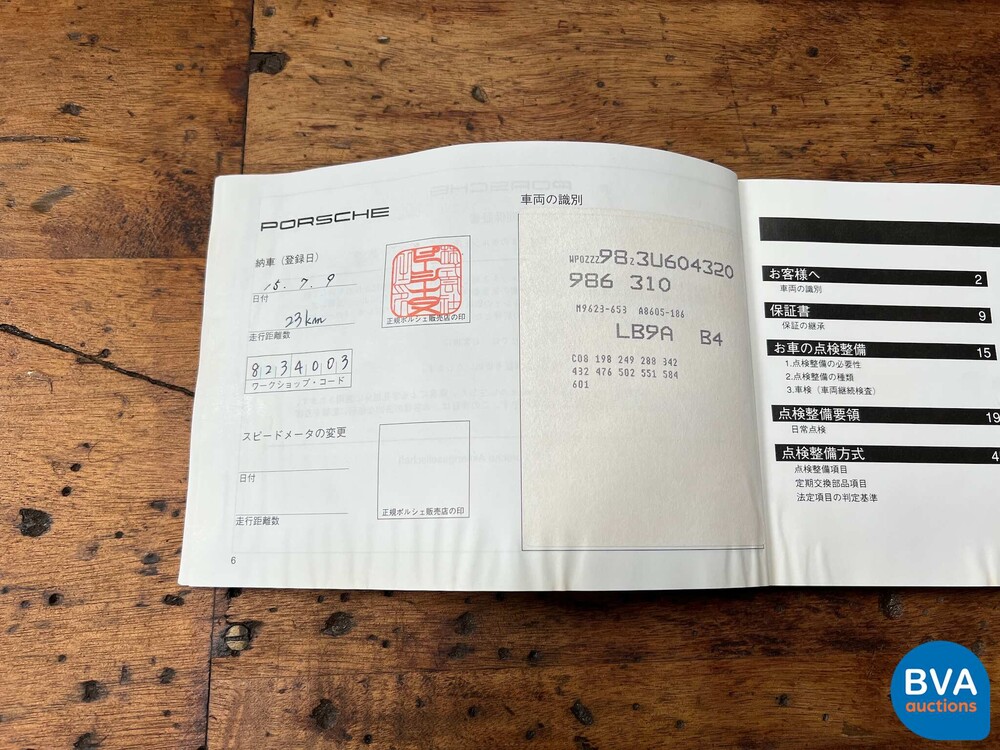 PORSCHE
納車（登録日）
15. 7. 9
日付
23km
走行距離数
正規ポルシェ販売店の印
8234003
ワークショップ・コード
スピードメータの変更
日付
走行距離数
正規ポルシェ販売店の印
6
車両の識別
WP0ZZZ98Z3U604320
986 310
M9623-653 A8605-186
LB9A B4
C08 198 249 288 342
432 476 502 551 584
601
お客様へ 2
車両の識別
保証書 9
保証の継承
お車の点検整備 15
1.点検整備の必要性
2.点検整備の種類
3.車検（車両継続検査）
点検整備要領 19
日常点検
点検整備方式 4
点検整備項目
定期交換部品項目
法定項目の判定基準
BVA
auctions